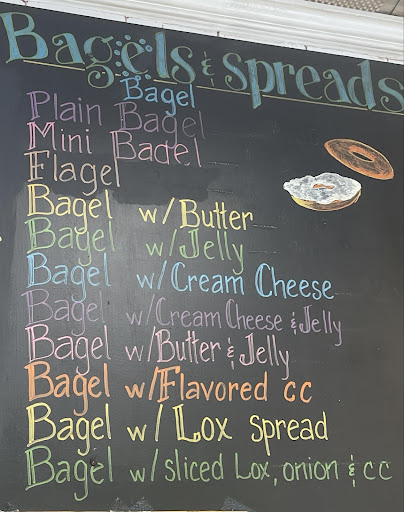 Bagels & spreads
Bagel
Plain Bagel
Mini Bagel
Flagel
Bagel w/Butter
Bagel w/Jelly
Bagel w/Cream Cheese
Bagel w/Cream Cheese & Jelly
Bagel w/Butter & Jelly
Bagel w/Flavored cc
Bagel w/ Lox spread
Bagel w/sliced Lox, onion & cc